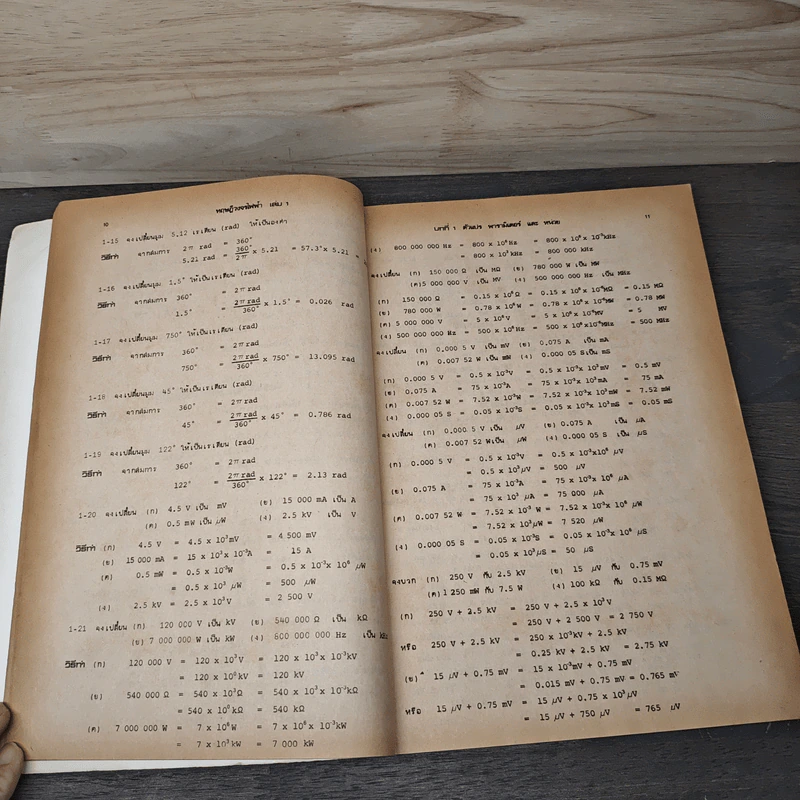 10
ทฤษฎีวงจรไฟฟ้า เล่ม 1
1-15 จงเปลี่ยนมุม 5.12 เรเดียน (rad) ให้เป็นองศา
วิธีทำ จากสมการ 2π rad = 360°
5.21 rad = 360°/2π x 5.21 = 57.3° x 5.21 =
1-16 จงเปลี่ยนมุม 1.5° ให้เป็นเรเดียน (rad)
วิธีทำ จากสมการ 360° = 2π rad
1.5° = 2π rad/360° x 1.5° = 0.026 rad
1-17 จงเปลี่ยนมุม 750° ให้เป็นเรเดียน (rad)
วิธีทำ จากสมการ 360° = 2π rad
750° = 2π rad/360° x 750° = 13.095 rad
1-18 จงเปลี่ยนมุม 45° ให้เป็นเรเดียน (rad)
วิธีทำ จากสมการ 360° = 2π rad
45° = 2π rad/360° x 45° = 0.786 rad
1-19 จงเปลี่ยนมุม 122° ให้เป็นเรเดียน (rad)
วิธีทำ จากสมการ 360° = 2π rad
122° = 2π rad/360° x 122° = 2.13 rad
1-20 จงเปลี่ยน (ก) 4.5 V เป็น mV (ข) 15 000 mA เป็น A
(ค) 0.5 mW เป็น μW (ง) 2.5 kV เป็น V
วิธีทำ (ก) 4.5 V = 4.5 x 10³mV = 4 500 mV
(ข) 15 000 mA = 15 x 10³ x 10⁻³A = 15 A
(ค) 0.5 mW = 0.5 x 10⁻³W = 0.5 x 10⁻³ x 10⁶ μW
= 0.5 x 10³ μW = 500 μW
(ง) 2.5 kV = 2.5 x 10³V = 2 500 V
1-21 จงเปลี่ยน (ก) 120 000 V เป็น kV (ข) 540 000 Ω เป็น kΩ
(ข) 7 000 000 W เป็น kW (ง) 800 000 000 Hz เป็น kHz
วิธีทำ (ก) 120 000 V = 120 x 10³V = 120 x 10³ x 10⁻³kV
= 120 x 10⁰kV = 120 kV
(ข) 540 000 Ω = 540 x 10³Ω = 540 x 10³ x 10⁻³kΩ
= 540 x 10⁰kΩ = 540 kΩ
(ค) 7 000 000 W = 7 x 10⁶W = 7 x 10⁶ x 10⁻³kW
= 7 x 10³kW = 7 000 kW
บทที่ 1 ตัวแปร พารามิเตอร์ และ หน่วย
11
(ง) 800 000 000 Hz = 800 x 10⁶Hz = 800 x 10⁶ x 10⁻³kHz
= 800 x 10³kHz = 800 000 kHz
จงเปลี่ยน (ก) 150 000 Ω เป็น MΩ (ข) 780 000 W เป็น MW
(ค) 5 000 000 V เป็น MV (ง) 500 000 000 Hz เป็น MHz
(ก) 150 000 Ω = 0.15 x 10⁶Ω = 0.15 x 10⁶ x 10⁻⁶MΩ = 0.15 MΩ
(ข) 780 000 W = 0.78 x 10⁶W = 0.78 x 10⁶ x 10⁻⁶MW = 0.78 MW
(ค) 5 000 000 V = 5 x 10⁶V = 5 x 10⁶ x 10⁻⁶MV = 5 MV
(ง) 500 000 000 Hz = 500 x 10⁶Hz = 500 x 10⁶ x 10⁻⁶MHz = 500 MHz
จงเปลี่ยน (ก) 0.000 5 V เป็น mV (ข) 0.075 A เป็น mA
(ค) 0.007 52 W เป็น mW (ง) 0.000 05 S เป็น mS
(ก) 0.000 5 V = 0.5 x 10⁻³V = 0.5 x 10⁻³ x 10³ mV = 0.5 mV
(ข) 0.075 A = 75 x 10⁻³A = 75 x 10⁻³ x 10³mA = 75 mA
(ค) 0.007 52 W = 7.52 x 10⁻³W = 7.52 x 10⁻³ x 10³mW = 7.52 mW
(ง) 0.000 05 S = 0.05 x 10⁻³S = 0.05 x 10⁻³ x 10³mS = 0.05 mS
จงเปลี่ยน (ก) 0.000 5 V เป็น μV (ข) 0.075 A เป็น μA
(ค) 0.007 52 W เป็น μW (ง) 0.000 05 S เป็น μS
(ก) 0.000 5 V = 0.5 x 10⁻³V = 0.5 x 10⁻³x10⁶ μV
= 0.5 x 10³μV = 500 μV
(ข) 0.075 A = 75 x 10⁻³A = 75 x 10⁻³ x 10⁶ μA
= 75 x 10³ μA = 75 000 μA
(ค) 0.007 52 W = 7.52 x 10⁻³ W = 7.52 x 10⁻³ x 10⁶ μW
= 7.52 x 10³μW = 7 520 μW
(ง) 0.000 05 S = 0.05 x 10⁻³S = 0.05 x 10⁻³ x 10⁶ μS
= 0.05 x 10³μS = 50 μS
จงบวก (ก) 250 V กับ 2.5 kV (ข) 15 μV กับ 0.75 mV
(ค) 1 250 mW กับ 7.5 W (ง) 100 kΩ กับ 0.15 MΩ
(ก) 250 V + 2.5 kV = 250 V + 2.5 x 10³V
= 250 V + 2 500 V = 2 750 V
หรือ 250 V + 2.5 kV = 250 x 10⁻³kV + 2.5 kV
= 0.25 kV + 2.5 kV = 2.75 kV
(ข) 15 μV + 0.75 mV = 15 x 10⁻³mV + 0.75 mV
= 0.015 mV + 0.75 mV = 0.765 mV
หรือ 15 μV + 0.75 mV = 15 μV + 0.75 x 10³μV
= 15 μV + 750 μV = 765 μV